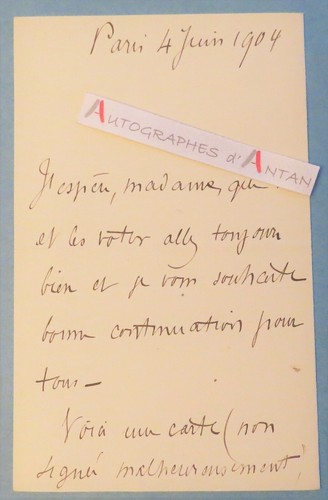 Paris 4 Juin 1904
AUTOGRAPHES d'ANTAN
J'espère, madame, que
et les votres allez toujours
bien et je vous souhaite
bonne continuation pour
tous —
Voici une carte (non
signée malheureusement,